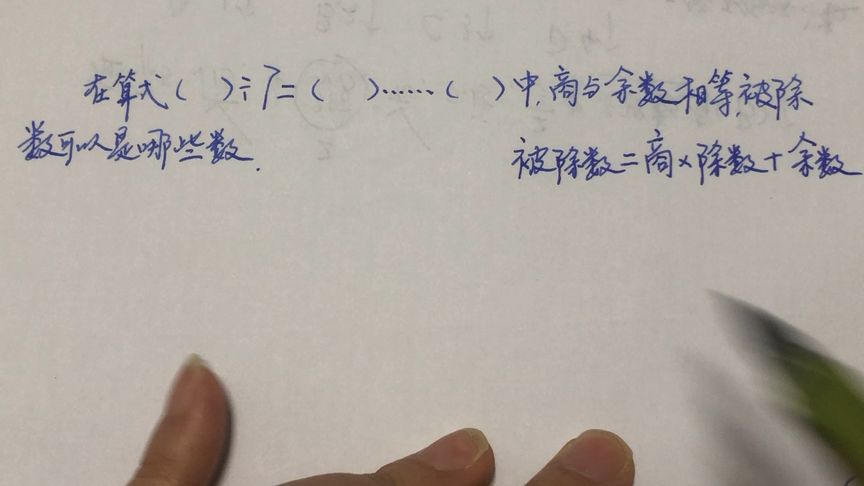 在算式（ ）÷7=（ ）……（ ）中,商与余数相等,被除
数可以是哪些数.
被除数=商×除数+余数